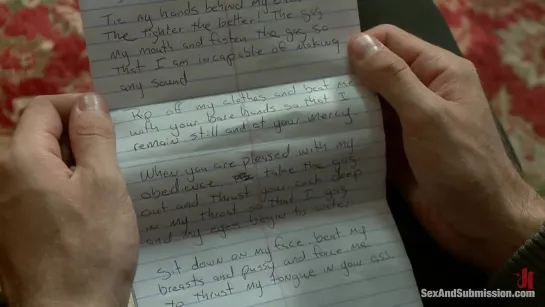 Tie my hands behind my back
The tighter the better! The gag
my mouth and fasten the gag so
that I am incapable of making
any sound
Rip off my clothes and beat me
with your bare hands so that I
remain still and at your mercy
When you are pleased with my
obedience, take the gag
out and thrust your cock deep
in my throat so that I gag
and my eyes begin to water
Sit down on my face, beat my
breasts and pussy and force me
to thrust my tongue in your ass
SexAndSubmission.com